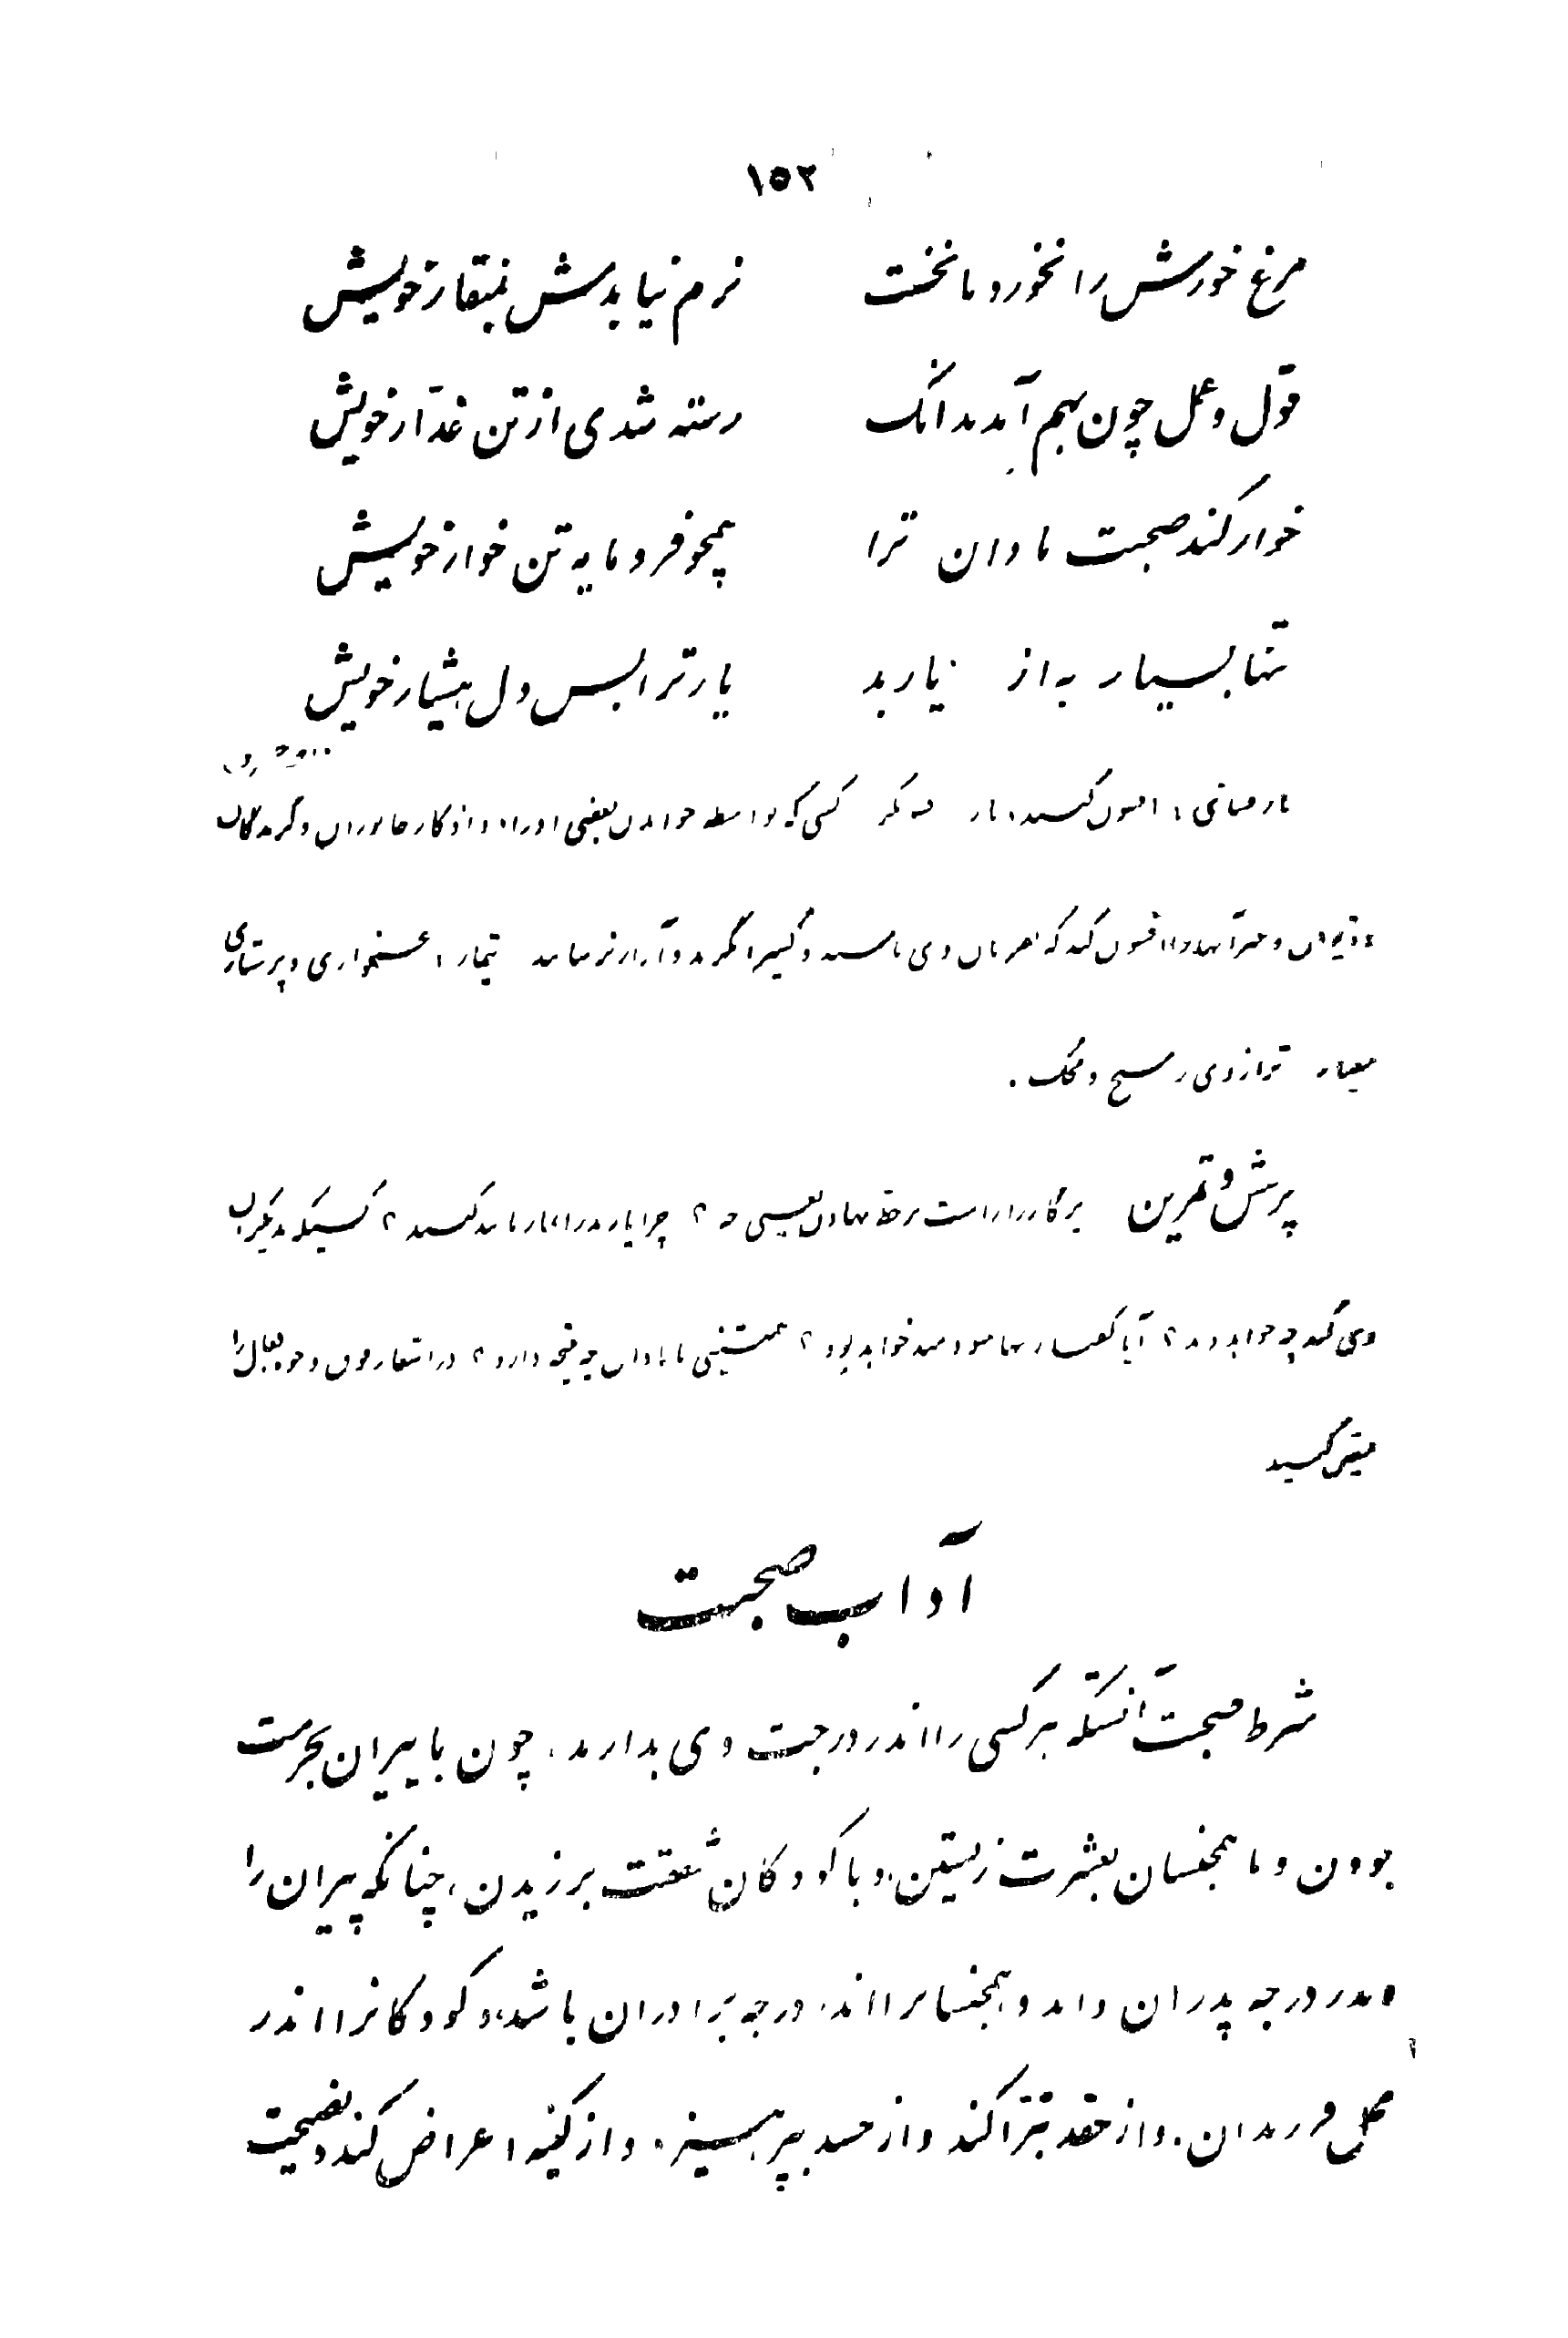 ۱۵۲
مرغ خورش را نخورد تا نخست نرم نیابدش بمنقار خویش
قول و عمل چون بهم آمد بدانک رسته شدی از تن غدّار خویش
خوار کند صحبت نادان ترا همچو فرومایه تن خوار خویش
تنها بسیار به از یار بد یار ترا بس دل هشیار خویش
کسی که بواسطه خواندن بعضی اوراد و اذکار جانوران و گزندگان
افسون کند که بفرمان وی باشند و کسیرا نگزند و آزار نرسانند تیمار : غمخواری و پرستاری
معیار ترازوی زرسنج و محک .
پرسش و تمرین پرگار را راست بر خط نهادن یعنی چه ؟ چرا یار بد را بمار مانند کنند ؟ کسیکه
وی کند چه خواهد دید ؟ آیا گفتار تنها سودمند خواهد بود ؟ همنشینی با نادان چه نتیجه دارد ؟ در اشعار فوق وجوه افعال را
معین کنید
آداب صحبت
شرط صحبت آنستکه هر کسی را اندر درجت وی بدارند ، چون با پیران بحرمت
بودن و با همجنسان بعشرت زیستن ، و با کودکان شفقت برزیدن ، چنانکه پیران را
اندر درجه پدران داند و همجنسانرا اندر درجه برادران باشد ، و کودکانرا اندر
محل فرزندان . و از حقد تبرّا کند و از حسد بپرهیزد . و از کینه اعراض کند و نصیحت